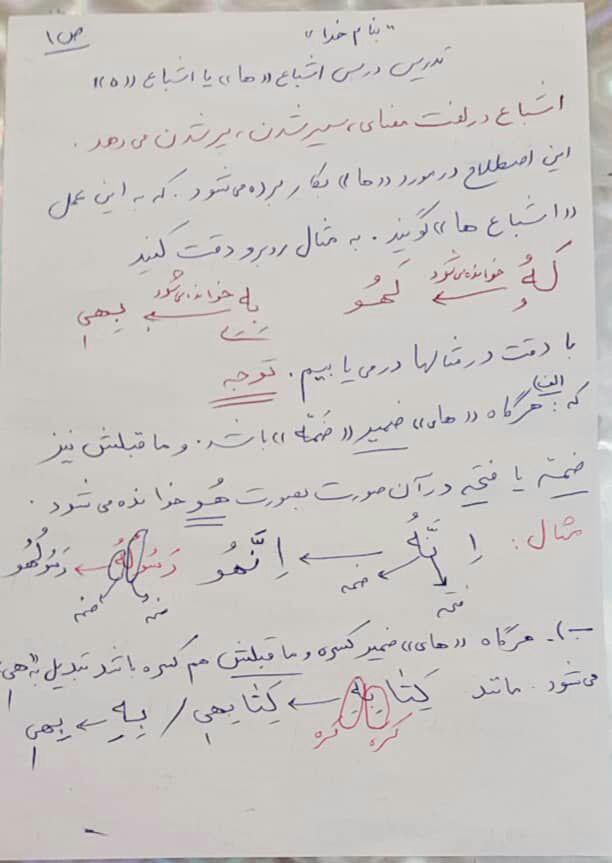 "بنام خدا" ص ۱
تدریس درس اشباع «ها» یا اشباع «ه»
اشباع در لغت معنای، سیر شدن، پر شدن می‌دهد.
این اصطلاح در مورد «ها» بکار برده می‌شود. که به این عمل
«اشباع ها» گویند. به مثال روبرو دقت کنید
لَهُ ← خوانده می‌شود لَهُو بِهِ ← خوانده می‌شود بِهی
با دقت در مثالها درمی‌یابیم. توجه
که: الف) هرگاه «های» ضمیر «ضمّه» باشد. و ماقبلش نیز
ضمّه یا فتحه در آن صورت بصورت هُو خوانده می‌شود.
مثال: اِنَّهُ ← اِنَّهُو رَسُولُهُ ← رَسُولُهُو
ضمه فتحه ضمه ضمه
ب)ـ هرگاه «های» ضمیر کسره و ماقبلش هم کسره باشد تبدیل به هی
می‌شود. مانند کِتابِهِ ← کِتابِهی / بِهِ ← بِهی
کسره کسره